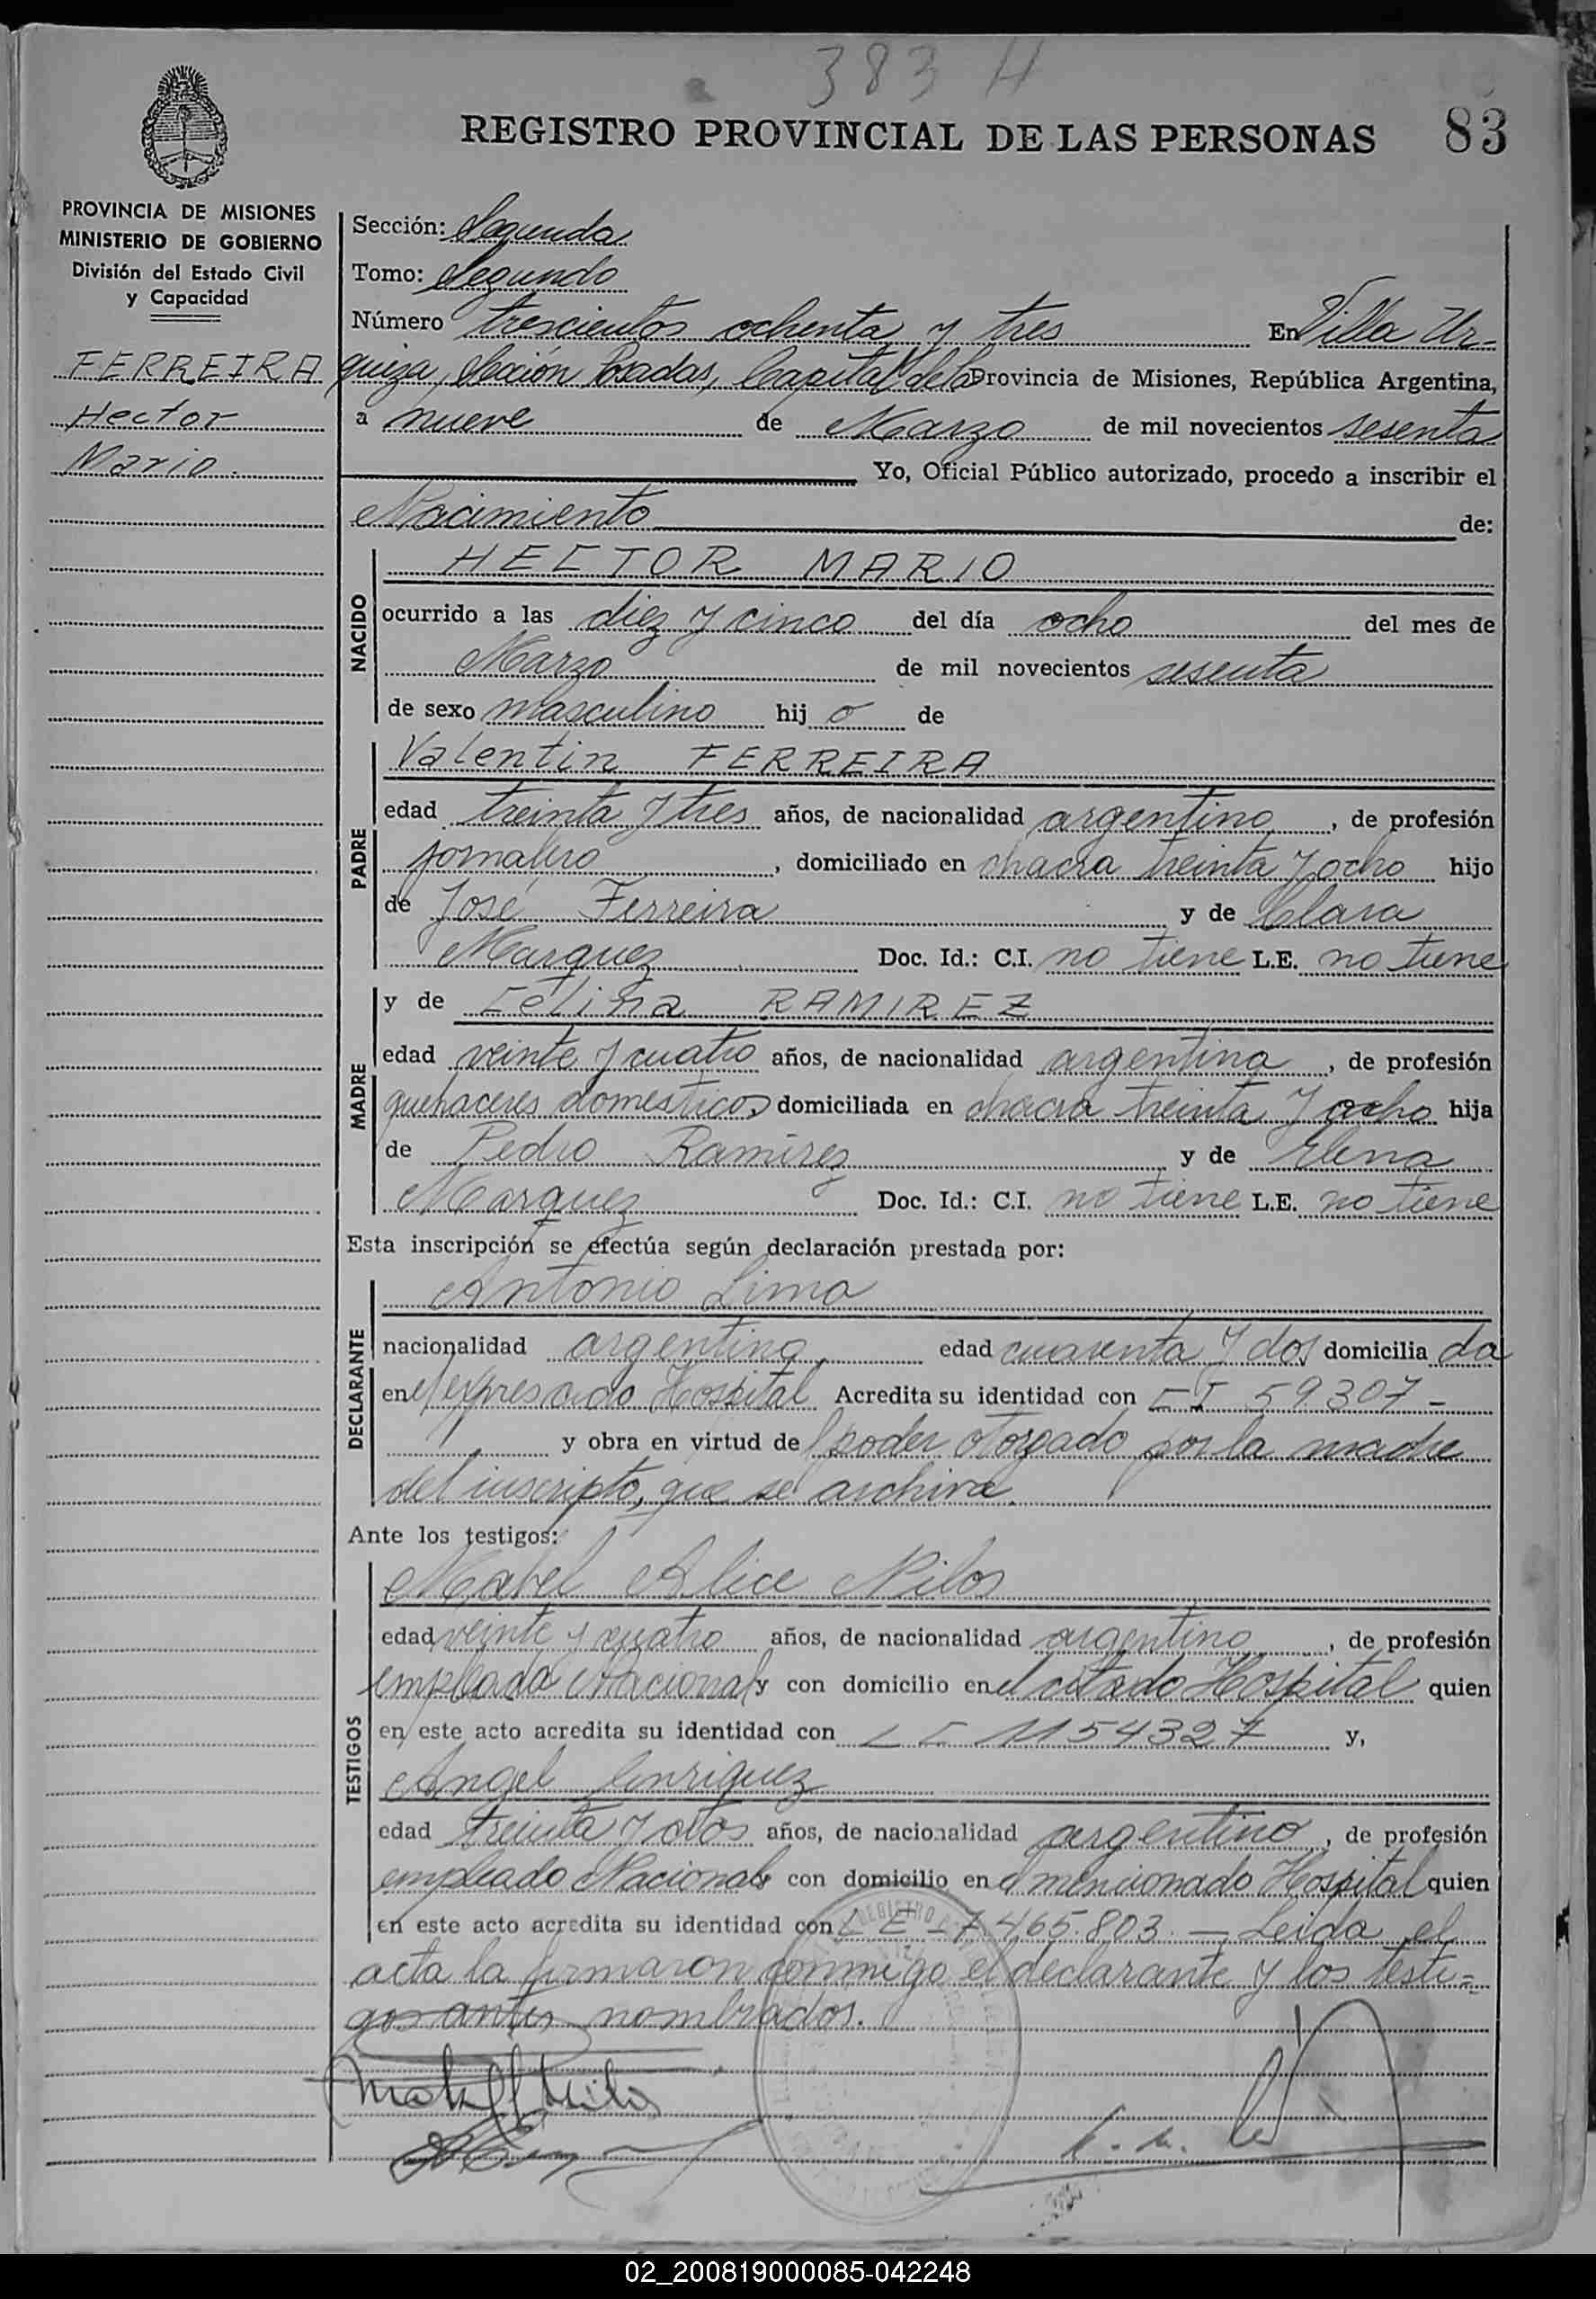 383 H
REGISTRO PROVINCIAL DE LAS PERSONAS 83
PROVINCIA DE MISIONES
MINISTERIO DE GOBIERNO
División del Estado Civil
y Capacidad
FERREIRA
Hector
Mario.
Sección: Segunda
Tomo: Segundo
Número trescientos ochenta y tres En Villa Ur-
quiza, Sección Posadas, Capital de la Provincia de Misiones, República Argentina,
a nueve de Marzo de mil novecientos sesenta
Yo, Oficial Público autorizado, procedo a inscribir el
Nacimiento de:
NACIDO
HECTOR MARIO
ocurrido a las diez y cinco del día ocho del mes de
Marzo de mil novecientos sesenta
de sexo masculino hij o de
PADRE
Valentin FERREIRA
edad treinta y tres años, de nacionalidad argentino, de profesión
jornalero, domiciliado en chacra treinta y ocho hijo
de José Ferreira y de Clara
Marquez Doc. Id.: C.I. no tiene L.E. no tiene
MADRE
y de Celina RAMIREZ
edad veinte y cuatro años, de nacionalidad argentina, de profesión
quehaceres domesticos, domiciliada en chacra treinta y ocho hija
de Pedro Ramirez y de Elena
Marquez Doc. Id.: C.I. no tiene L.E. no tiene
Esta inscripción se efectúa según declaración prestada por:
DECLARANTE
Antonio Lima
nacionalidad argentina edad cuarenta y dos domicilia da
en el expresado Hospital Acredita su identidad con C I 59.307 -
y obra en virtud del poder otorgado por la madre
del inscripto, que se archiva.
Ante los testigos:
TESTIGOS
Mabel Alice Nilos
edad veinte y cuatro años, de nacionalidad argentina, de profesión
empleada Nacional y con domicilio en el citado Hospital quien
en este acto acredita su identidad con L C 1154327 y,
Angel Enriquez
edad treinta y dos años, de nacionalidad argentino, de profesión
empleado Nacional y con domicilio en el mencionado Hospital quien
en este acto acredita su identidad con L E - 7.465.803. — Leida el
acta la firmaron conmigo el declarante y los testi=
gos antes nombrados.
02_200819000085-042248